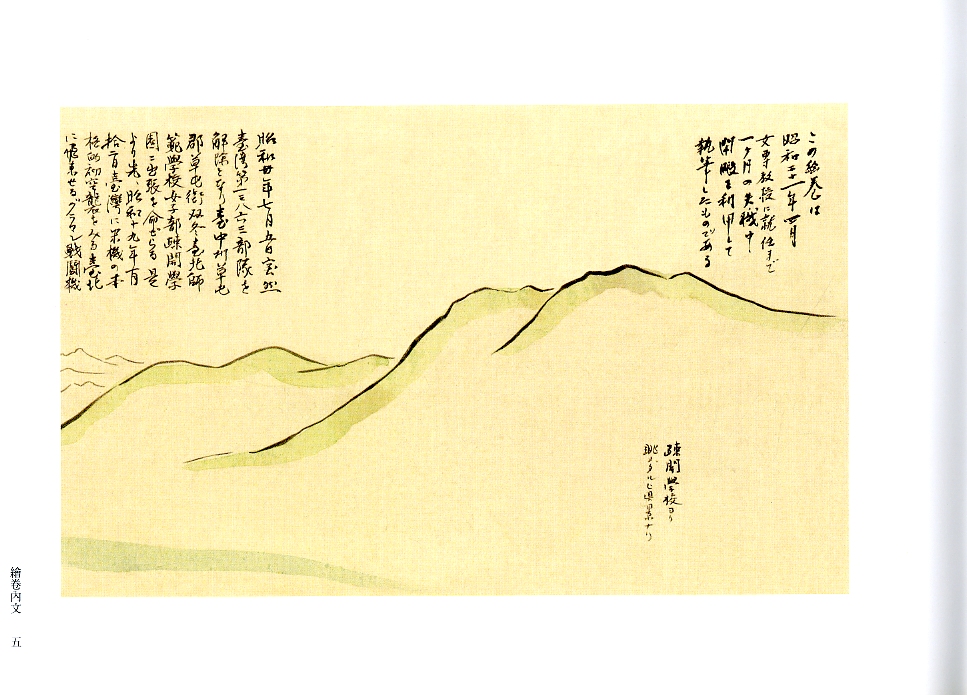 この絵巻は
昭和二十一年四月
女専教授に就任まで
一ケ月の失機中
閑暇を利用して
執筆したものである
疎開學校ヨリ
眺メタル
景ナリ
昭和廿年七月五日突然
臺湾第一三八六三部隊を
解除となり臺中州草屯
郡草屯街双冬臺北師
範學校女子部疎開學
園ニ出張を命ぜらる 是
より先、昭和十九年十月
拾二日臺湾に米機の本
格的初空襲をみる 臺北
に飛来せるグラマン戦闘機
繪卷內文
五